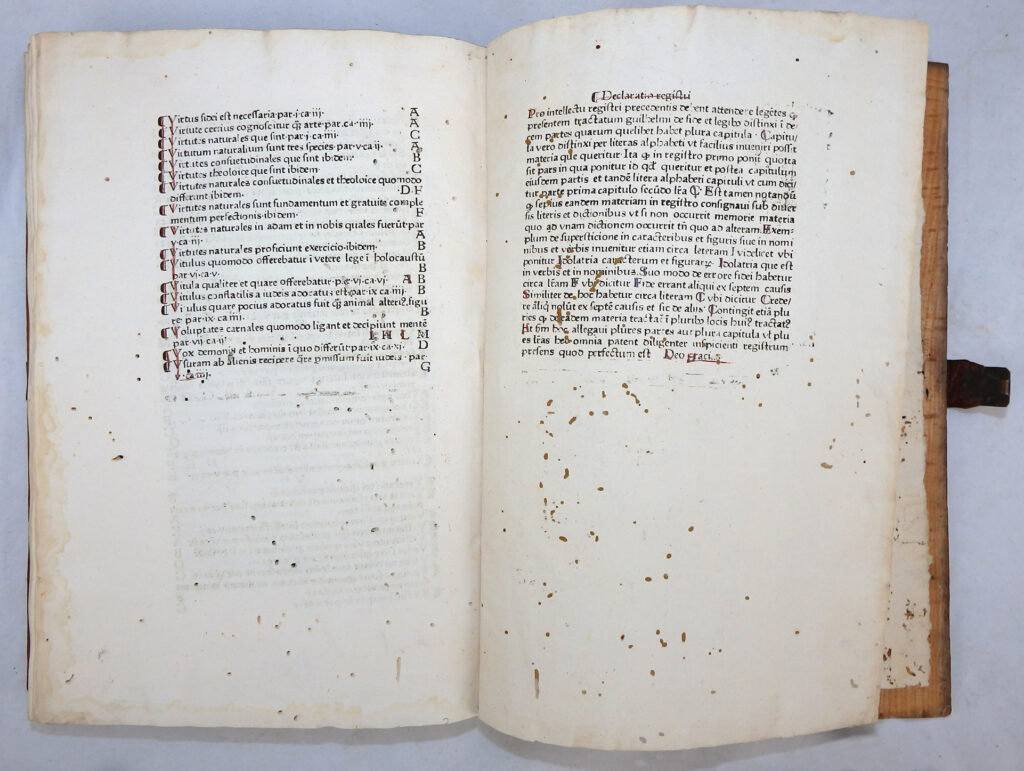 Virtus fidei est necessaria·par·j·ca·iij· A
Virtute certius cognoscitur q̃ arte·par·ca·iiij· A
Virtutes naturales que sint·par·j·ca·iiij· G
Virtutum naturalium sunt tres species·par·v·ca·ij· A
Virtutes consuetudinales que sint ibidem· B
Virtutes theoloice que sint ibidem· C
Virtutes naturales consuetudinales et theoloice quomodo
differunt ibidem· ·D·F
Virtutes naturales sunt fundamentum et gratuite comple
mentum perfectionis·ibidem· F
Virtutes naturales in adam et in nobis quales fuerūt·par
v·ca·iij· A
Virtutes naturales proficiunt exercicio·ibidem· B
Vitulus quomodo offerebatur ī vetere lege ī holocaustū
par·vj·ca·v· B
Vitula qualiter et quare offerebatur·par·vj·ca·vj· A B
Vitulus conflatilis a iudeis adoratus est·par·ix·ca·iiij· B
Vitulus quare pocius adoratus fuit q̃ animal alteriꝰ·figu
re·par·ix·ca·iiij· B
Voluptates carnales quomodo ligant et decipiunt mentē
par·vij·ca·ij· I H L M
Vox demonis et hominis ī quo differūt·par·ix·ca·xj· D
Vsuram ab alienis recipere qr̄e pmissum fuit iudeis·par·
j·ca·iiij· G
Declaratio registri
Pro intellectu registri precedentis debent attendere legētes ꝙ
presentem tractatum guilhelmi de fide et legibꝰ distinxi ī de
cem partes quarum quelibet habet plura capitula· Capitu/
la vero distinxi per literas alphabeti vt facilius inueniri possit
materia que queritur· Ita ꝙ in registro primo ponī quotta
sit pars in qua ponitur id qd̄ queritur et postea capitulum
eiusdem partis et tandē litera alphabeti capituli vt cum dici/
tur parte prima capitulo secūdo lr̄a C· Est tamen notandū
ꝙ sepius eandem materiam in registro consignaui sub diuer
sis literis et dictionibus vt si non occurrit memorie materia
quo ad vnam dictionem occurrit tn̄ quo ad alteram· Exem-
plum de supersticione in caracteribus et figuris siue in nomi
nibus et verbis inuenitur etiam circa leteram I videlicet vbi
ponitur Idolatria caracterum et figurarꝝ· Idolatria que est
in verbis et in nominibus· Suo modo de errore fidei habetur
circa lr̄am F vbi dicitur Fide errant aliqui ex septem causis
Similiter de hoc habetur circa literam C vbi dicitur Crede/
re aliq̄ nolūt ex septē causis et sic de aliis· Contingit etiā plu
ries ꝙ de eadem materia tractaī ī pluribꝰ locis huiꝰ tractatꝰ
Et scd̄m hoc allegaui plures partes aut plura capitula vt plu
es lr̄as hec omnia patent diligenter inspicienti registrum
presens quod perfectum est Deo gracias